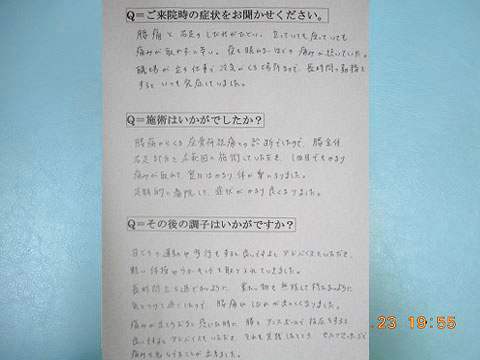 Q＝ご来院時の症状をお聞かせください。
腰痛と右足のしびれがひどい、立っていても座っていても
痛みが取れず辛い。夜も眠れないほどの痛みが続いていた。
職場が立ち仕事で冷気がくる場所なので、長時間の勤務を
するといつも発症していました。
Q＝施術はいかがでしたか？
腰痛からくる座骨神経痛との診断でしたので、腰全体
右足計を広範囲に施術していただき、1回目でもかなり
痛みが取れて翌日はかなり体が楽になりました。
定期的に来院して、症状がかなり良くなりました。
Q＝その後の調子はいかがですか？
日ごろの運動や歩行をすると良いですよとアドバイスをいただき、
軽い体操やウォーキングを取り入れていきました。
長時間立ち過ぎないように 重い物を無理して持たないように
気をつけて過ごしたので 腰痛やしびれが出にくくなりました。
痛みが出そうだなと思った時に 腰をアイスボールで指圧をすると
良いですよとアドバイスをいただき それを実践したら セルフで
痛みを
23 19:55